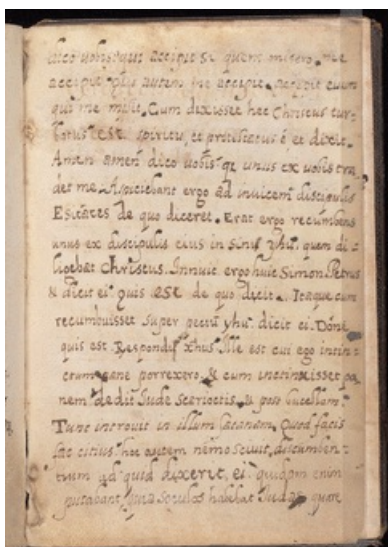 dico vobis qui accipit si quem misero. me
accipit qui autem me accipit. accipit eum
qui me misit. Cum dixisset hec Christus tur-
batus est spiritu, et protestatus é et dixit.
Amen amen dico uobis qz unus ex uobis tra
det me. Aspiciebant ergo ad inuicem discipulis
Esitães de quo diceret. Erat ergo recumbens
unus ex discipulis eius in sinu yhu. quem di-
ligebat Christus. Innuit ergo huic Simon Petrus
& dicit ei quis est de quo dicit. Itaque cum
recumbuisset super pectu yhu dicit ei. Dóne
quis est. Respondit xhus Ille est cui ego intin
ctum pane porrexero. & cum intinxisset pa
nem dedit Iude scariottis. & post bucellam
Tunc introuit in illum satanam. Quod facis
fac citius. hoc autem nemo sciuit, discumben-
tium ad quid dixerit, ei. quidam enim
putabant, quia loculos habebat Iudas, quare